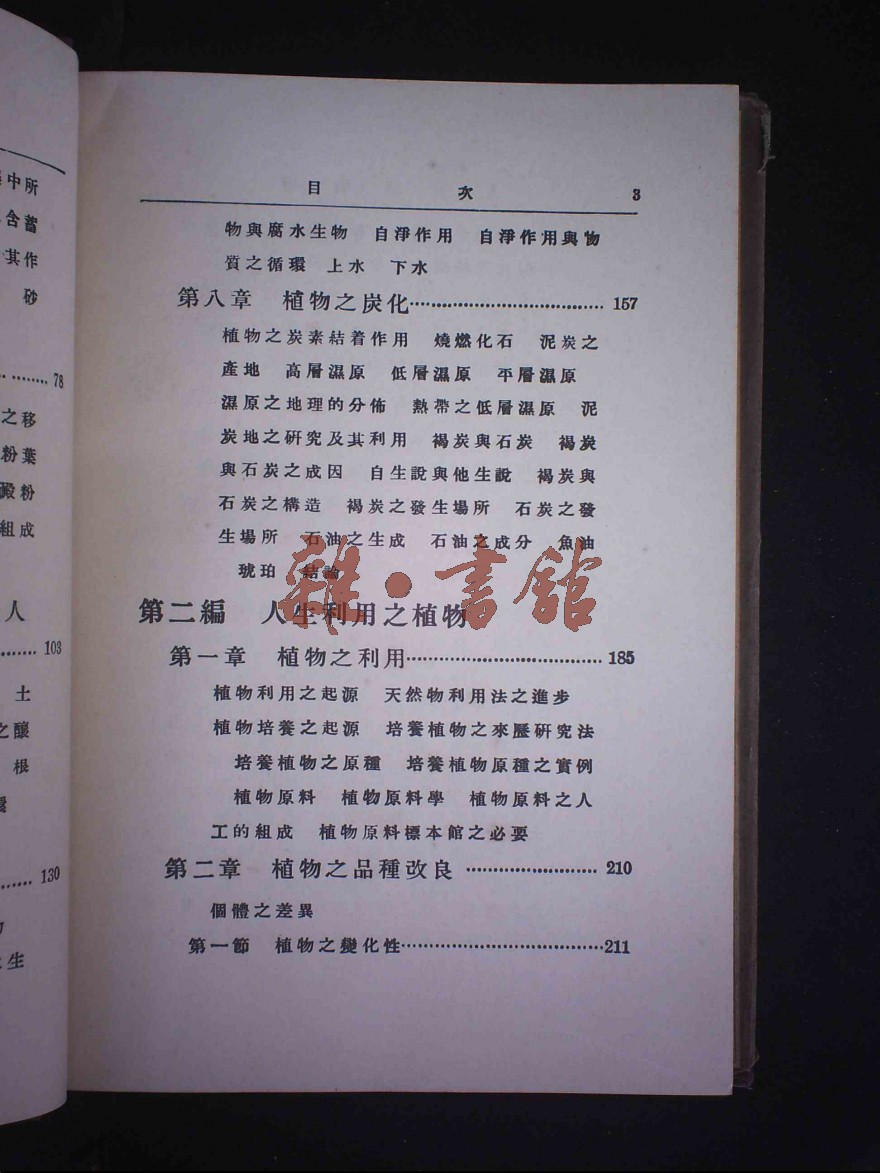 中所
含蓄
其作
砂
........ 78
之移
粉葉
澱粉
組成
人
..... 103
土
之釀
根
...... 130
生
目 次 3
物與腐水生物 自淨作用 自淨作用與物
質之循環 上水 下水
第八章 植物之炭化................................ 157
植物之炭素結着作用 燒燃化石 泥炭之
產地 高層濕原 低層濕原 平層濕原
濕原之地理的分佈 熱帶之低層濕原 泥
炭地之研究及其利用 褐炭與石炭 褐炭
與石炭之成因 自生說與他生說 褐炭與
石炭之構造 褐炭之發生場所 石炭之發
生場所 石油之生成 石油之成分 魚油
琥珀 結論
第二編 人生利用之植物
第一章 植物之利用................................ 185
植物利用之起源 天然物利用法之進步
植物培養之起源 培養植物之來歷研究法
培養植物之原種 培養植物原種之實例
植物原料 植物原料學 植物原料之人
工的組成 植物原料標本館之必要
第二章 植物之品種改良 ...................... 210
個體之差異
第一節 植物之變化性..................................211
雜·書館